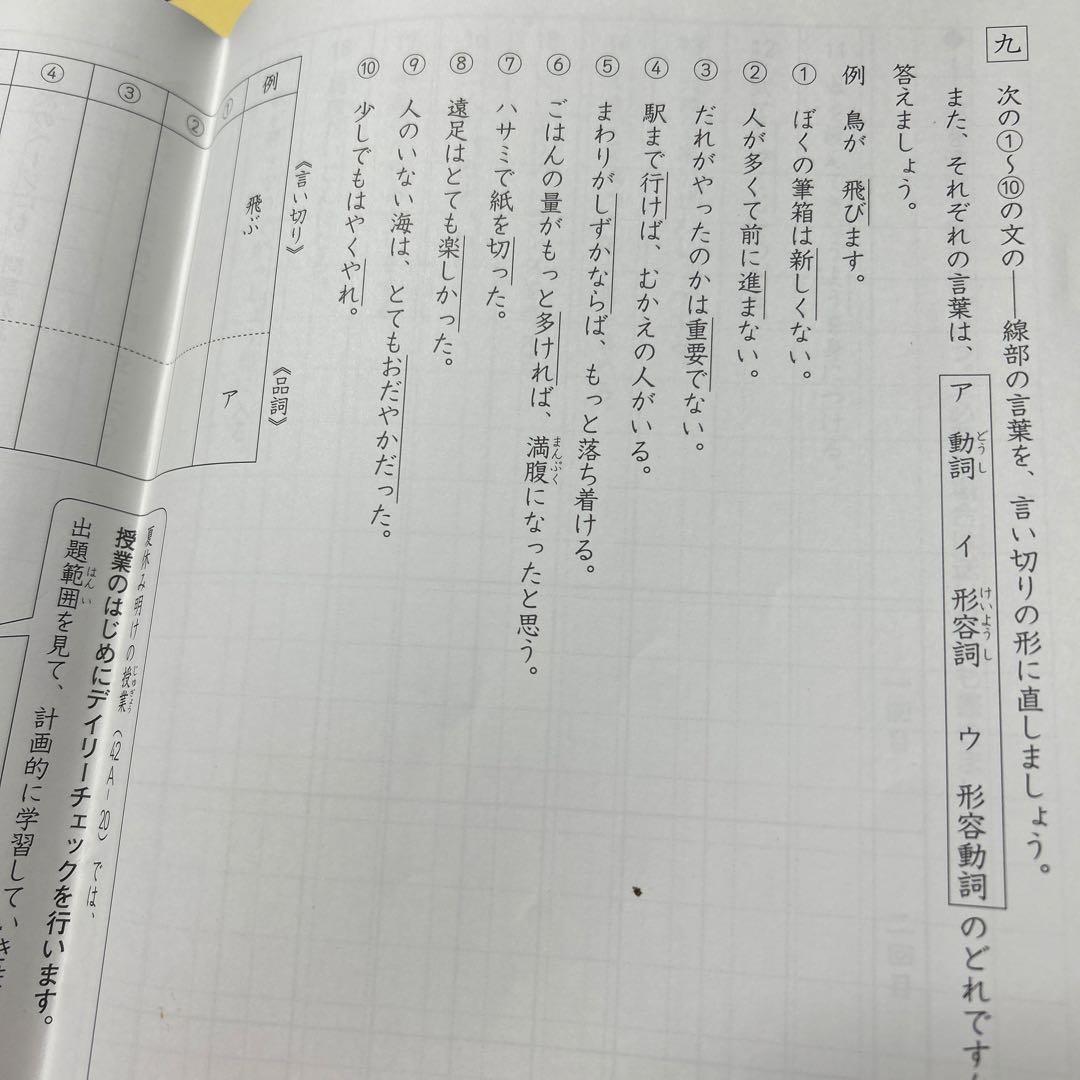 九 次の①～⑩の文の――線部の言葉を、言い切りの形に直しましょう。
また、それぞれの言葉は、ア 動詞 イ 形容詞 ウ 形容動詞 のどれです
答えましょう。
例 鳥が 飛びます。
① ぼくの筆箱は新しくない。
② 人が多くて前に進まない。
③ だれがやったのかは重要でない。
④ 駅まで行けば、むかえの人がいる。
⑤ まわりがしずかならば、もっと落ち着ける。
⑥ ごはんの量がもっと多ければ、満腹になったと思う。
⑦ ハサミで紙を切った。
⑧ 遠足はとても楽しかった。
⑨ 人のいない海は、とてもおだやかだった。
⑩ 少しでもはやくやれ。
《言い切り》 《品詞》
例 飛ぶ ア
①
②
③
④
夏休み明けの授業(42A-20)では、
授業のはじめにデイリーチェックを行います。
出題範囲を見て、計画的に学習してい